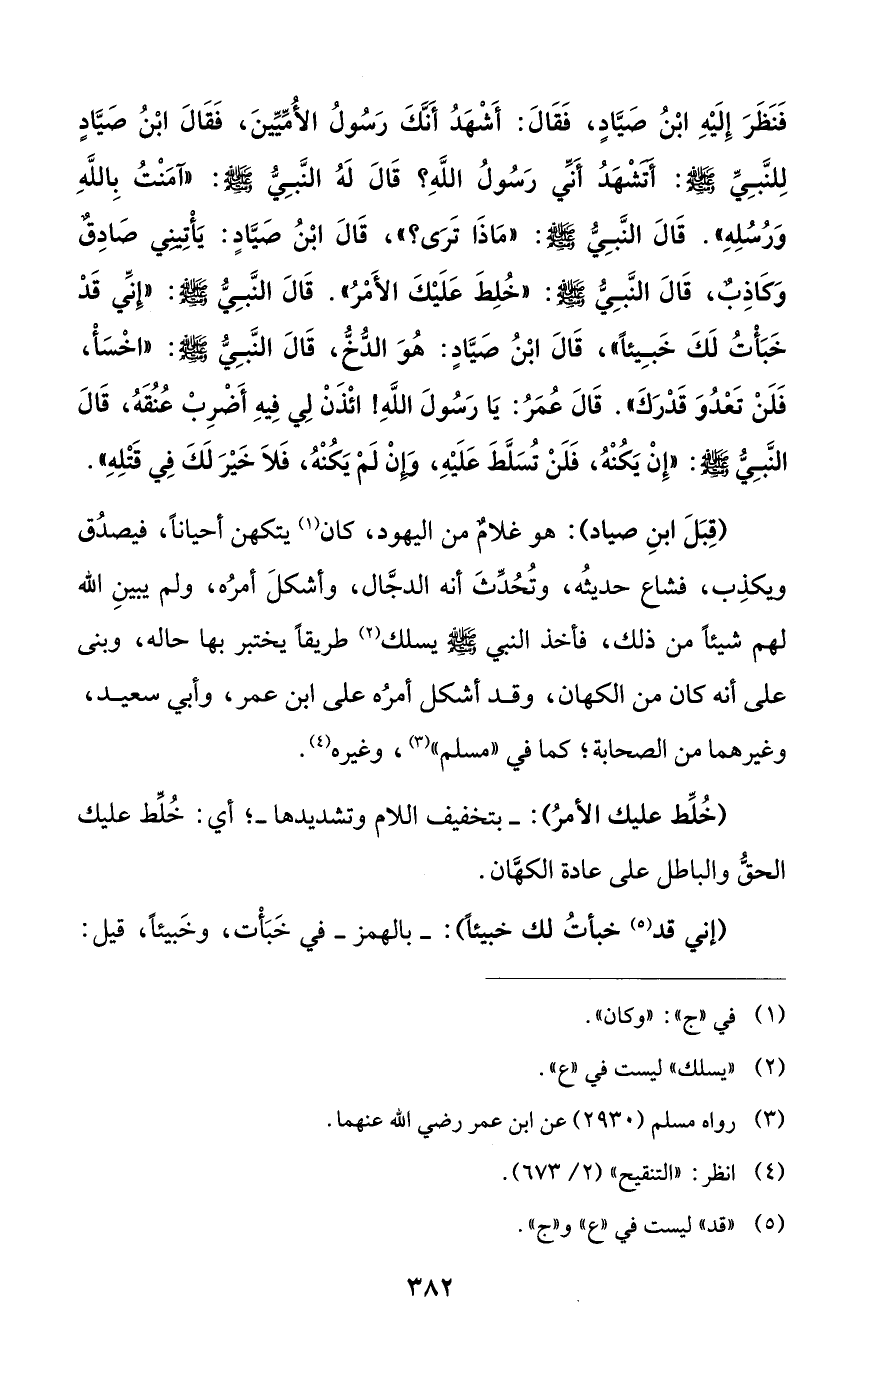 فَنَظَرَ إِلَيْهِ ابْنُ صَيَّادٍ، فَقَالَ: أَشْهَدُ أَنَّكَ رَسُولُ الأُمِّيِّينَ، فَقَالَ ابْنُ صَيَّادٍ
لِلنَّبِيِّ ﷺ: أَتَشْهَدُ أَنِّي رَسُولُ اللَّهِ؟ قَالَ لَهُ النَّبِيُّ ﷺ: «آمَنْتُ بِاللَّهِ
وَرُسُلِهِ». قَالَ النَّبِيُّ ﷺ: «مَاذَا تَرَى؟»، قَالَ ابْنُ صَيَّادٍ: يَأْتِينِي صَادِقٌ
وَكَاذِبٌ، قَالَ النَّبِيُّ ﷺ: «خُلِطَ عَلَيْكَ الأَمْرُ». قَالَ النَّبِيُّ ﷺ: «إِنِّي قَدْ
خَبَأْتُ لَكَ خَبِيئاً»، قَالَ ابْنُ صَيَّادٍ: هُوَ الدُّخُّ، قَالَ النَّبِيُّ ﷺ: «اخْسَأْ،
فَلَنْ تَعْدُوَ قَدْرَكَ». قَالَ عُمَرُ: يَا رَسُولَ اللَّهِ! ائْذَنْ لِي فِيهِ أَضْرِبْ عُنُقَهُ، قَالَ
النَّبِيُّ ﷺ: «إِنْ يَكُنْهُ، فَلَنْ تُسَلَّطَ عَلَيْهِ، وَإِنْ لَمْ يَكُنْهُ، فَلاَ خَيْرَ لَكَ فِي قَتْلِهِ».
(قِبَلَ ابنِ صياد): هو غلامٌ من اليهود، كان(١) يتكهن أحياناً، فيصدُق
ويكذِب، فشاع حديثُه، وتُحُدِّثَ أنه الدجَّال، وأشكلَ أمرُه، ولم يبينِ الله
لهم شيئاً من ذلك، فأخذ النبي ﷺ يسلك(٢) طريقاً يختبر بها حاله، وبنى
على أنه كان من الكهان، وقد أشكل أمرُه على ابن عمر، وأبي سعيد،
وغيرهما من الصحابة؛ كما في «مسلم»(٣)، وغيره(٤).
(خُلِّط عليك الأمرُ): ـ بتخفيف اللام وتشديدها ـ؛ أي: خُلِّط عليك
الحقُّ والباطل على عادة الكهَّان.
(إني قد(٥) خبأتُ لك خبيئاً): ـ بالهمز ـ في خَبَأْت، وخَبيئاً، قيل:
(١) في «ج»: «وكان».
(٢) «يسلك» ليست في «ع».
(٣) رواه مسلم (٢٩٣٠) عن ابن عمر رضي الله عنهما.
(٤) انظر: «التنقيح» (٢/ ٦٧٣).
(٥) «قد» ليست في «ع» و«ج».
٣٨٢